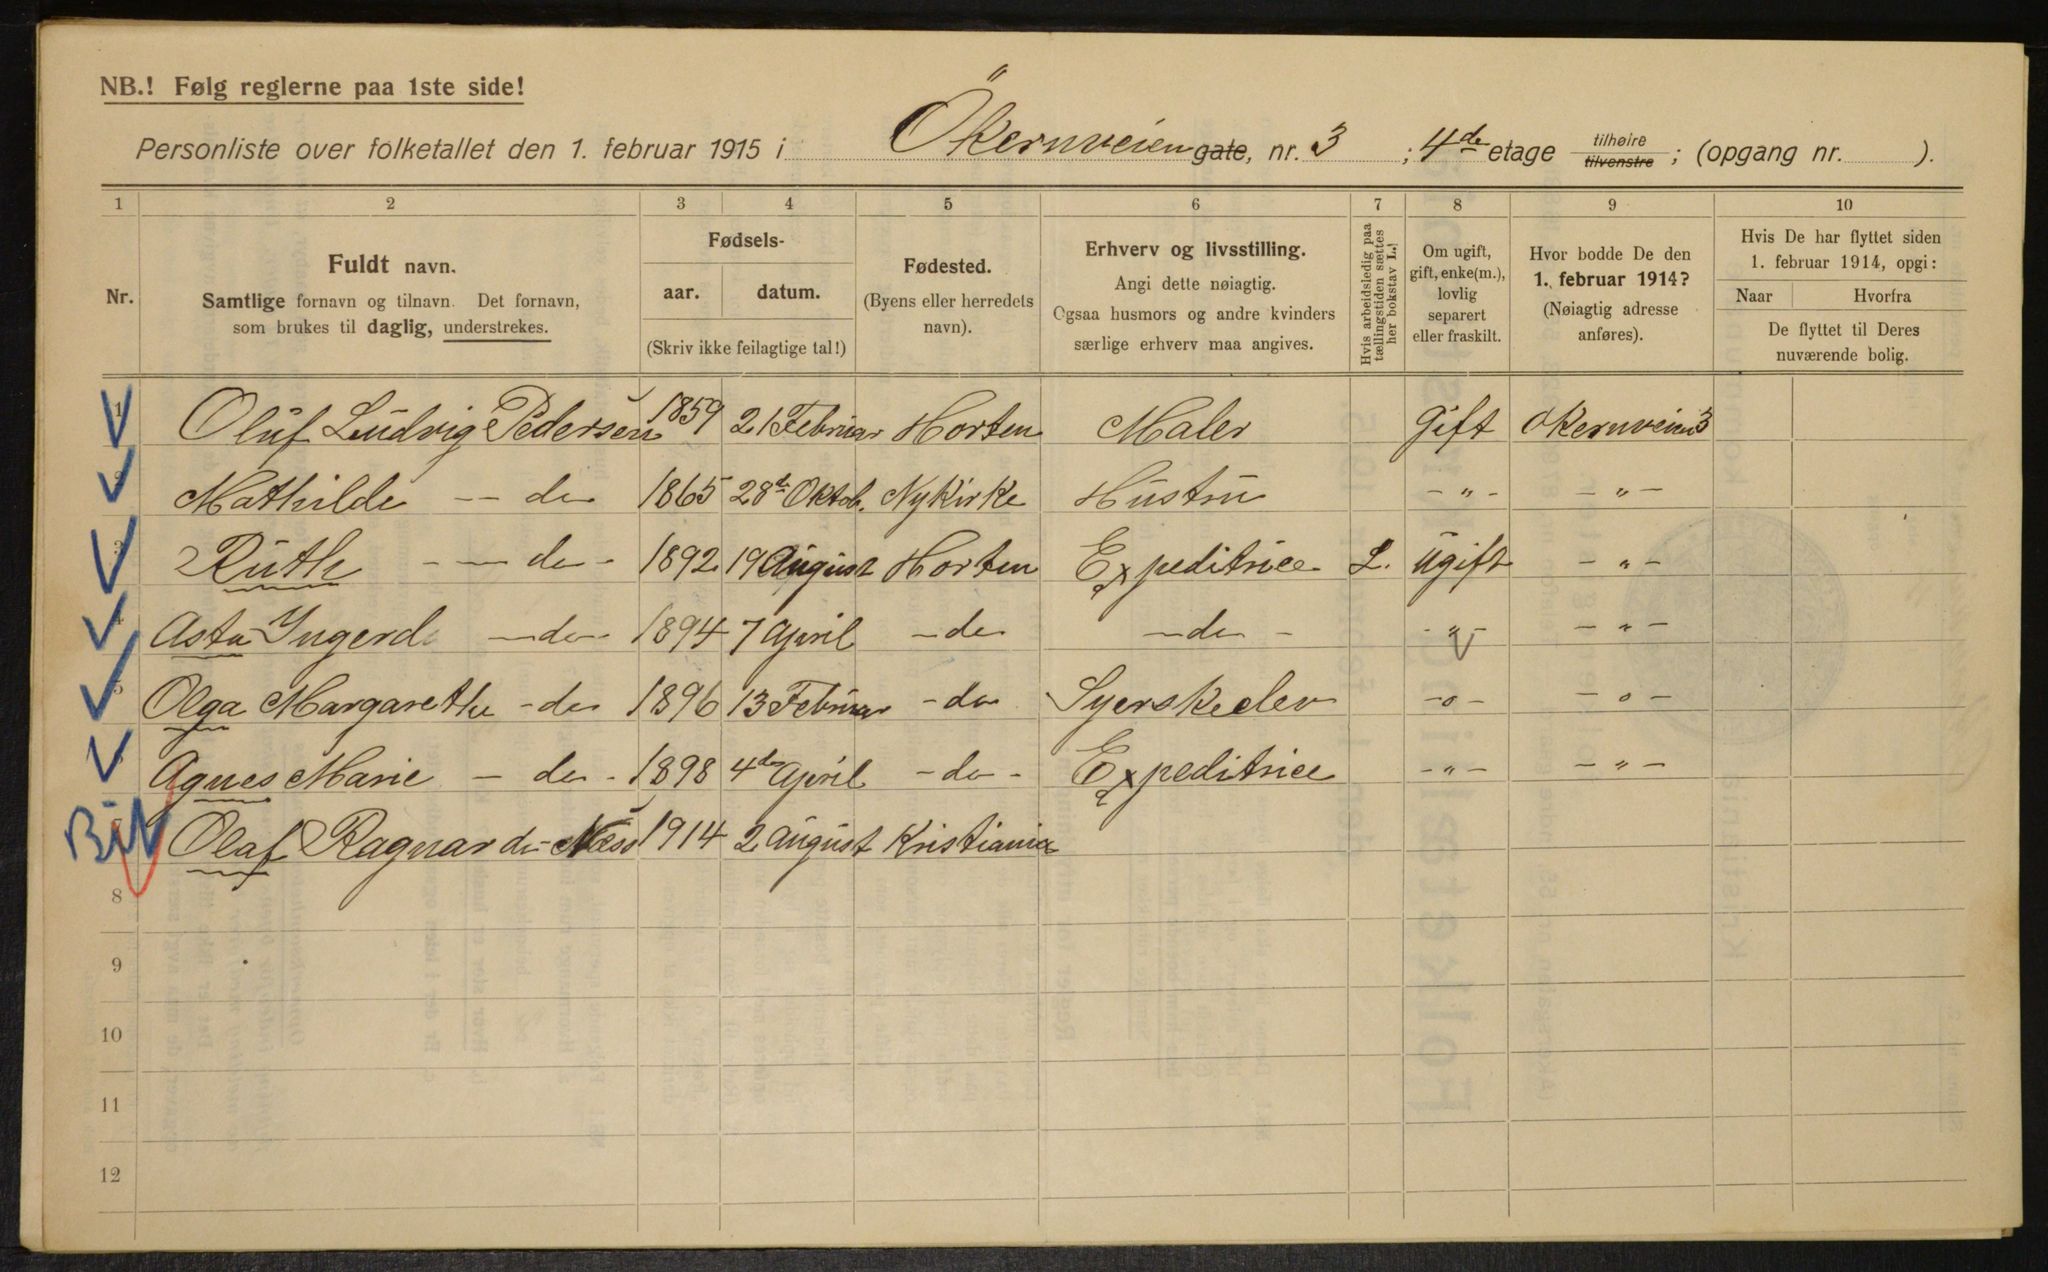 NB.! Følg reglerne paa 1ste side!
Personliste over folketallet den 1. februar 1915 i Økernveien gate, nr. 3 ; 4de etage tilhøire tilvenstre ; (opgang nr. ).
1 2 3 4 5 6 7 8 9 10
Nr.
Fuldt navn.
Samtlige fornavn og tilnavn. Det fornavn,
som brukes til daglig, understrekes.
Fødsels-
aar. datum.
(Skriv ikke feilagtige tal!)
Fødested.
(Byens eller herredets
navn).
Erhverv og livsstilling.
Angi dette nøiagtig.
Ogsaa husmors og andre kvinders
særlige erhverv maa angives.
Hvis arbeidsledig paa
tællingstiden sættes
her bokstav L.!
Om ugift,
gift, enke(m.),
lovlig
separert
eller fraskilt.
Hvor bodde De den
1. februar 1914?
(Nøiagtig adresse
anføres).
Hvis De har flyttet siden
1. februar 1914, opgi:
Naar Hvorfra
De flyttet til Deres
nuværende bolig.
1 Oluf Ludvig Pedersen 1859 21 Februar Horten Maler Gift Økernveien 3
2 Mathilde — do 1865 28de Oktob. Nykirke Hustru - " - - " -
3 Ruth - — do - 1892 19 August Horten Expeditrice L. Ugift - " -
4 Asta Ingerd — do - 1894 7 April - do - do - - " - - " -
5 Olga Margarethe - do 1896 13 Februar - do Syerskeelev - " - - " -
6 Agnes Marie - do - 1898 4de April - do - Expeditrice - " - - " -
7 Olaf Ragnar do - Næss 1914 2 August Kristiania
8
9
10
11
12